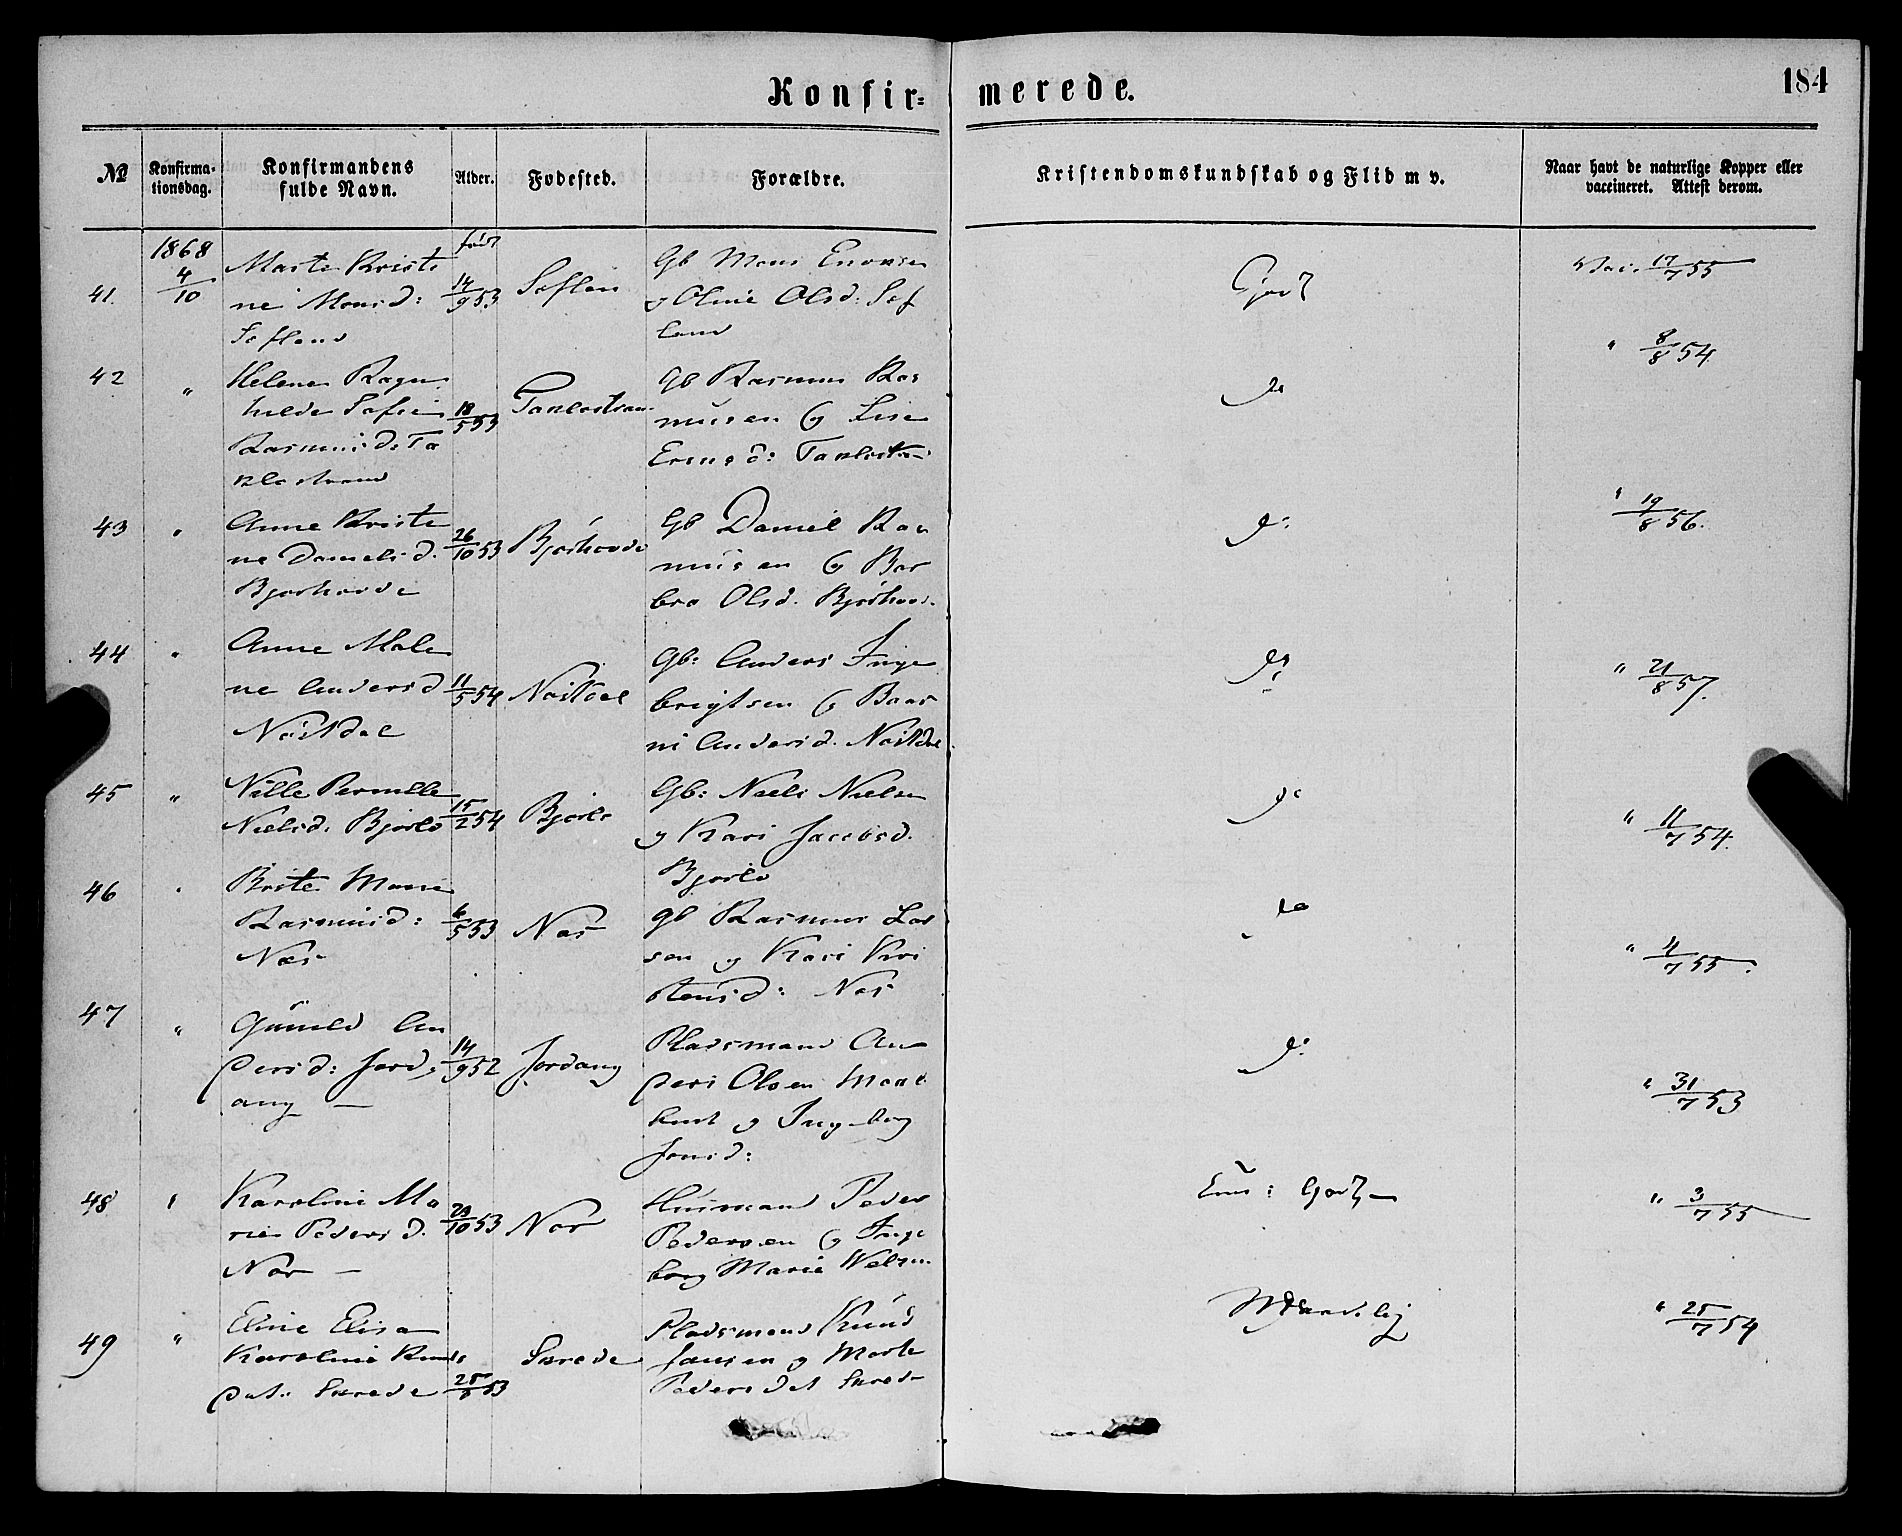 Konfir=
merede.
184
No
Konfirma-
tionsdag.
Konfirmandens
fulde Navn.
Alder.
Fødested.
Forældre.
Kristendomskundskab og Flid m v.
Naar havt de naturlige Kopper eller
vaccineret. Attest derom.
41.
1868
4/10
Marte Kristi
ne Monsd:
født
14/9 53
Gb Mons
og Oline Olsd:
Godt
Vac. 17/7 55
42
"
Helene Ragn
hilde Sofie
Rasmusd:
18/5 53
Gb Rasmus Ras
musen og Lise
Do
" 8/8 54
43
"
Anne Kristi
ne Danielsd.
Bjørhovde
26/10 53
Bjørhovde
Gb Daniel Ras
musen og Bar
bra Olsd. Bjørhov.
do
" 19/8 56.
44
"
Anne Male
ne Andersd
Nøstdal
11/5 54
Nøstdal
Gb: Anders Inge
brigtsen og
Andersd. Nøstdal
do
" 21/8 57.
45
"
Nille Pernille
Nielsd. Bjørlo
15/2 54
Bjørlo
Gb: Niels Nielsen
og Kari Jacobsd.
Bjørlo
do
" 11/7 54.
46
"
Brite Marie
Rasmusd:
Nes
6/5 53
Nes
gb Rasmus Lar
sen og Kari Kri
stensd: Nes
do
" 4/7 55.
47
"
Gunild An
dersd: Jord
ang —
14/9 52
Jordang
Pladsmand An
ders Olsen
og Ingeborg
Jonsd:
do
" 31/7 53
48
"
Karoline Ma
rie Pedersd.
Nor —
29/10 53
Nor
Husmand Peder
Pedersen og Inge
borg Marie
Godt
" 3/7 55
49
"
Eline Elisa
Karoline Knuds
dat. Skrede
25/8 53
Skrede
Pladsmand Knud
Jansen og Marte
Pedersdat Skrede
" 25/7 54